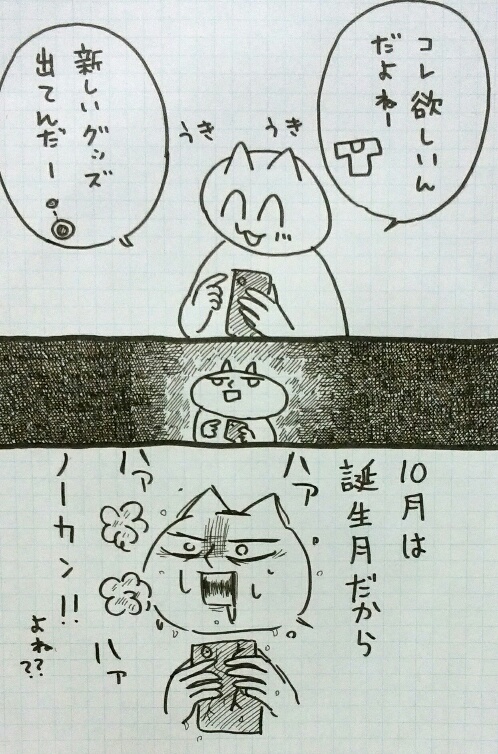 コレ欲しいん
だよねー
うき
うき
新しいグッズ
出てんだー
10月は
誕生月だから
ハァ
ハァ
ノーカン!!
よね??
ハァ